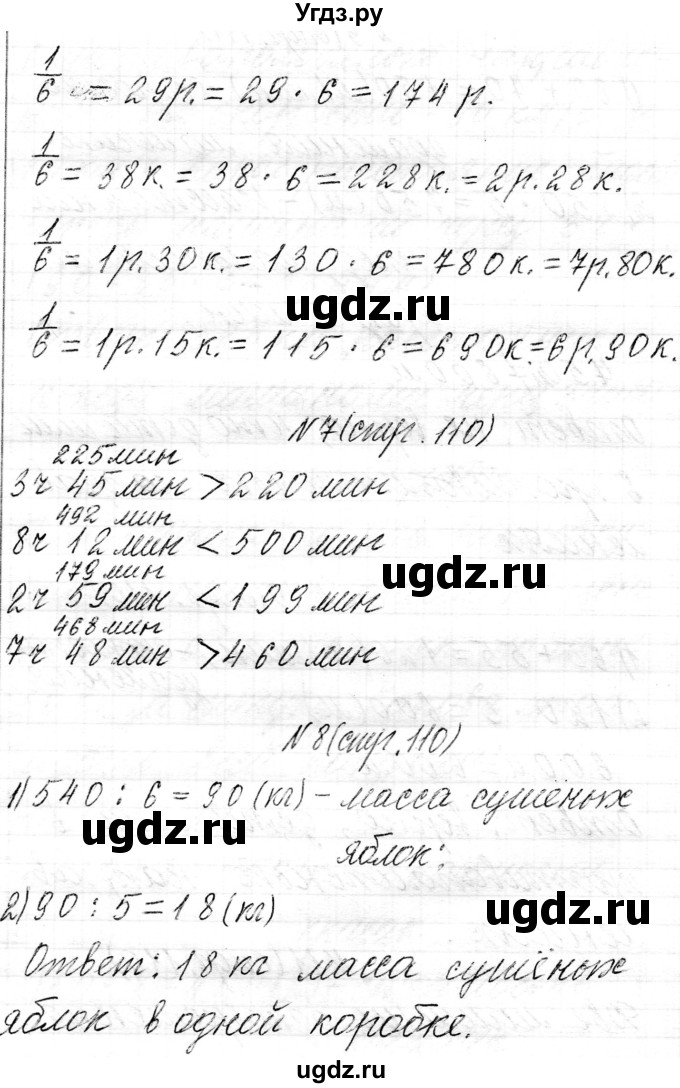 Угдз.ру
1/6 = 29р. = 29 · 6 = 174 р.
1/6 = 38к. = 38 · 6 = 228к. = 2р. 28к.
1/6 = 1р. 30к. = 130 · 6 = 780к. = 7р. 80к.
ugdz.ru
1/6 = 1р. 15к. = 115 · 6 = 690к. = 6р. 90к.
N7 (стр. 110)
225мин
3ч 45мин > 220мин
492 мин
8ч 12мин < 500мин
ugdz.ru
179мин
2ч 59мин < 199мин
468мин
7ч 48мин > 460мин
N8 (стр. 110)
1) 540 : 6 = 90 (кг) - масса сушёных
ugdz.ru
яблок;
2) 90 : 5 = 18 (кг)
ugdz.ru
Ответ: 18 кг масса сушёных
яблок в одной коробке.
ugdz.ru